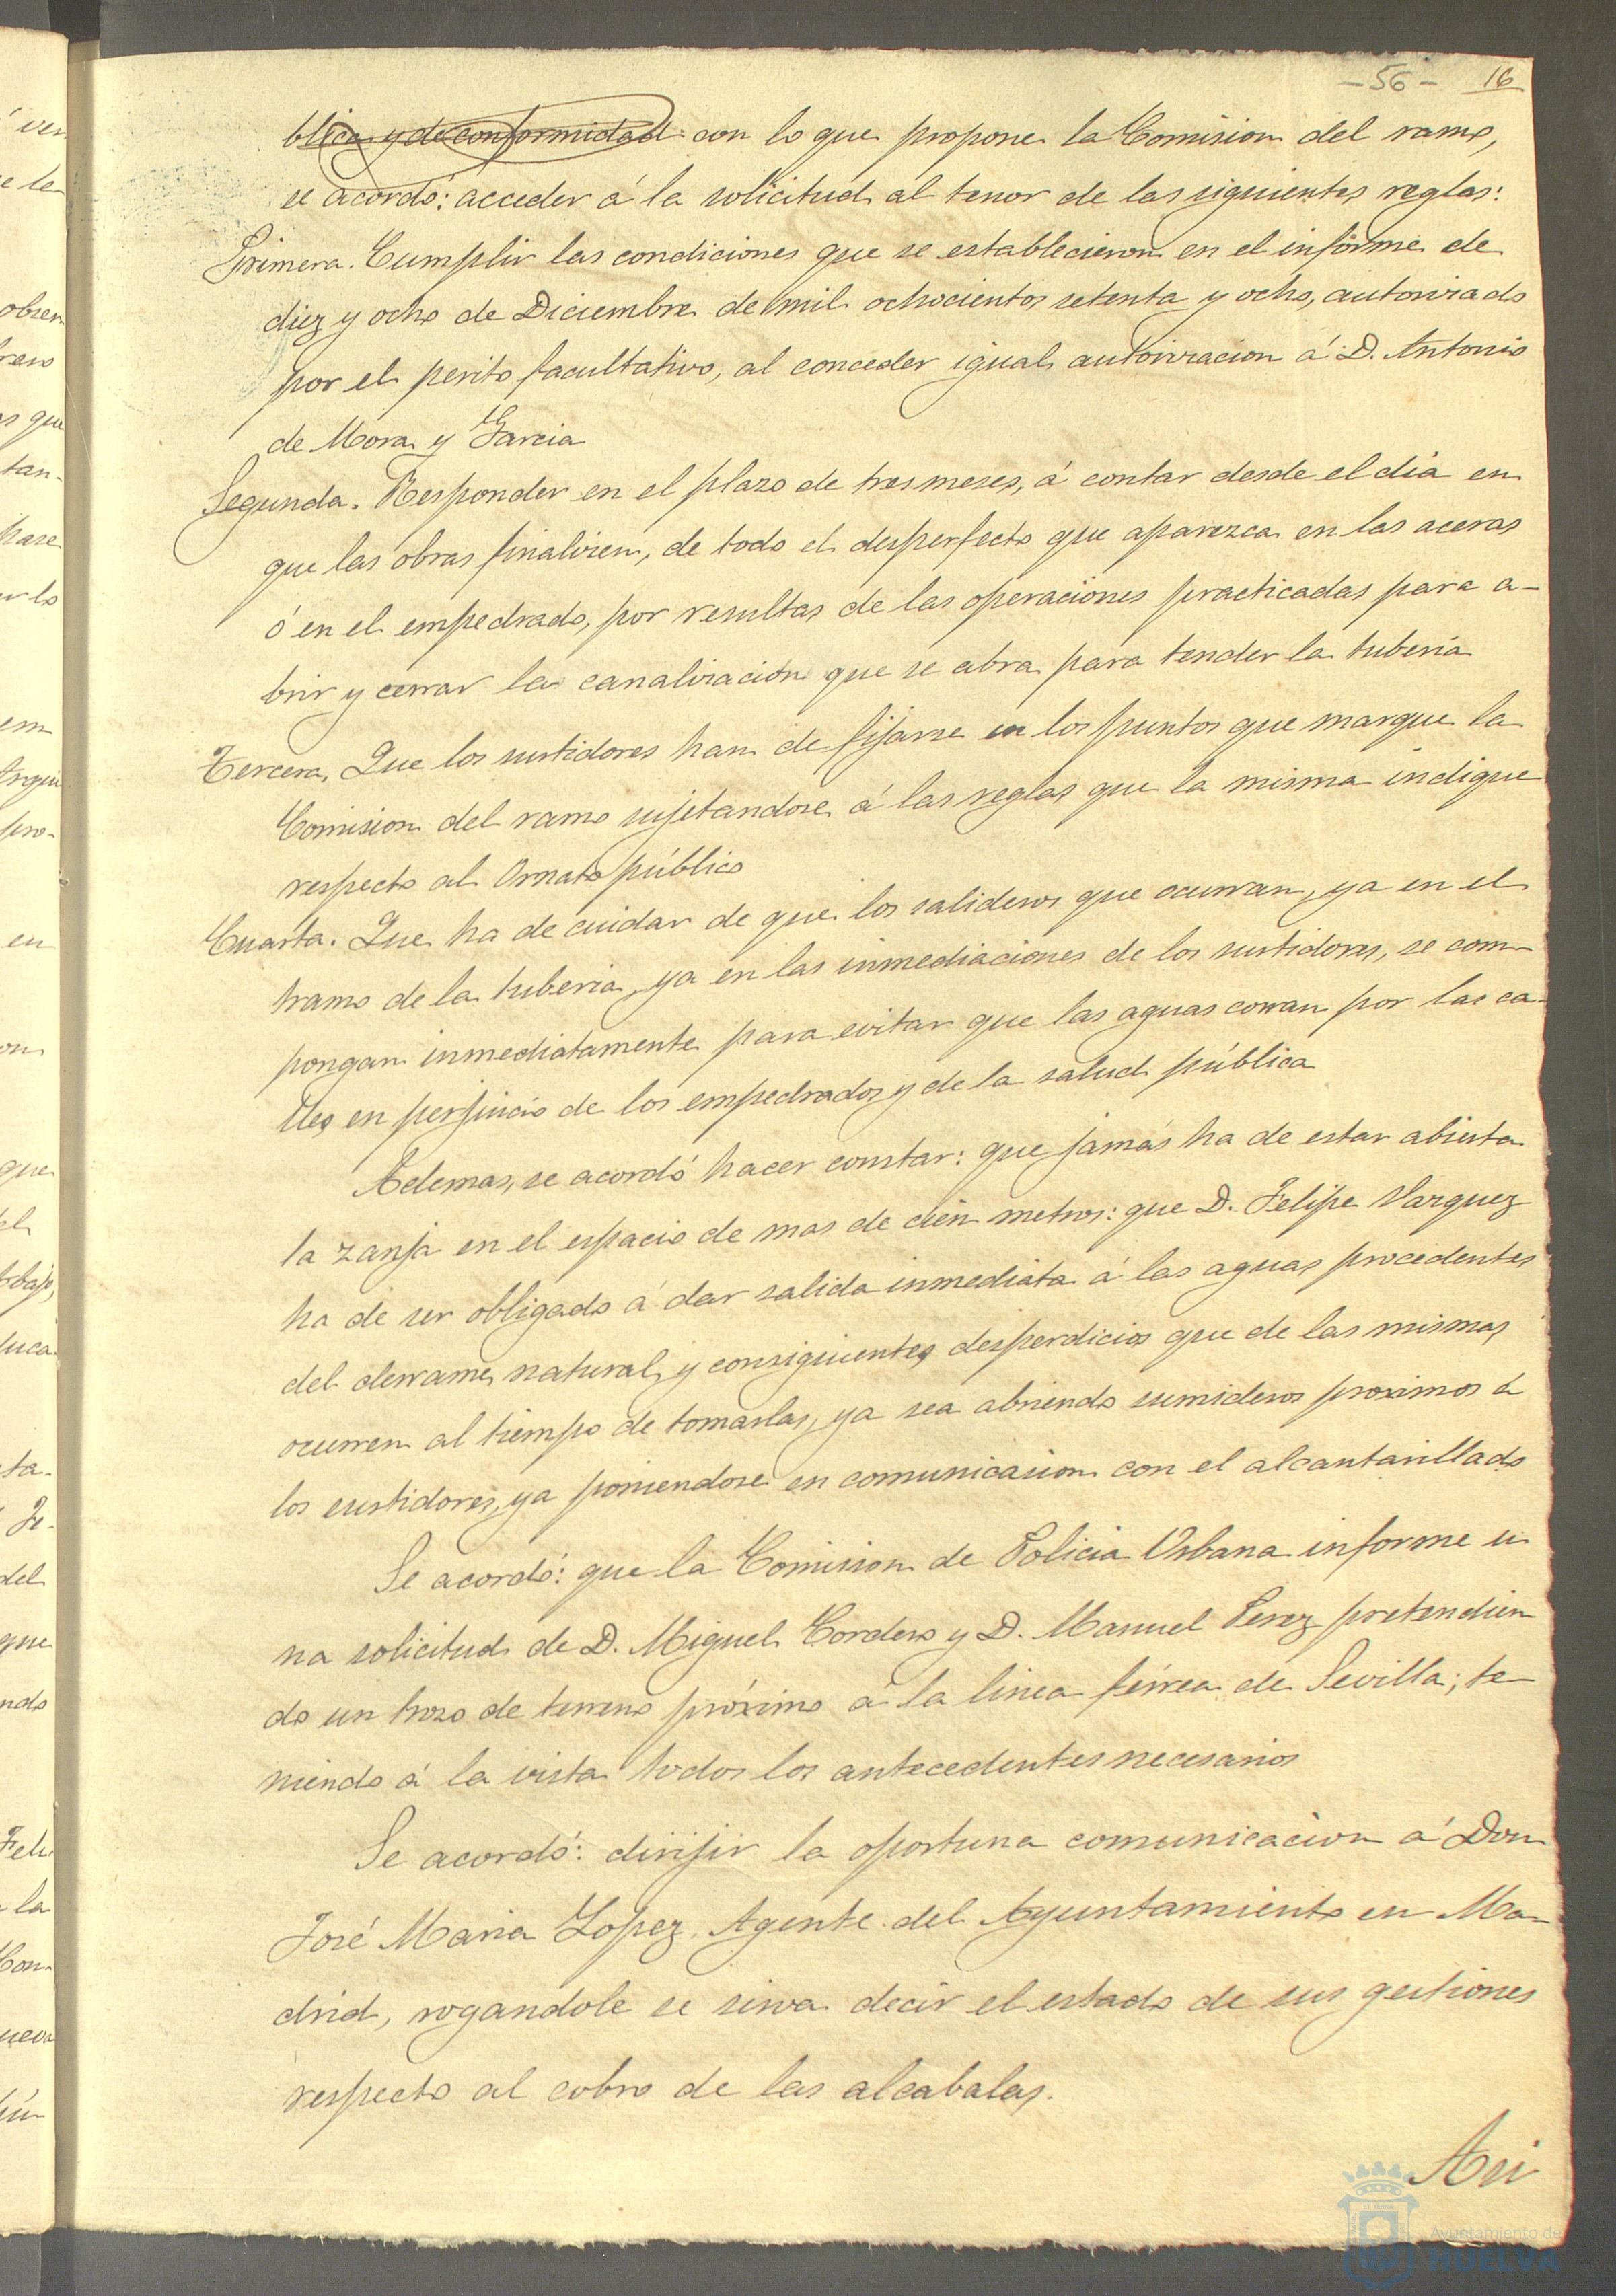 -56- 16
blica y de conformidad con lo que propone la Comision del ramo,
se acordó: acceder á la solicitud al tenor de las siguientes reglas:
Primera. Cumplir las condiciones que se establecieron en el informe de
diez y ocho de Diciembre de mil ochocientos setenta y ocho, autorizado
por el perito facultativo, al conceder igual autorizacion á D. Antonio
de Mora y Garcia
Segunda. Responder en el plazo de tres meses, á contar desde el dia en
que las obras finalicen, de todo el desperfecto que aparezca en las aceras
ó en el empedrado, por resultas de las operaciones practicadas para a-
brir y cerrar la canalizacion que se abra para tender la tuberia
Tercera. Que los surtidores han de fijarse en los puntos que marque la
Comision del ramo sujetandose á las reglas que la misma indique
respecto al Ornato público
Cuarta. Que ha de cuidar de que los salideros que ocurran, ya en el
tramo de la tuberia, ya en las inmediaciones de los surtidores, se com-
pongan inmediatamente para evitar que las aguas corran por las ca-
lles en perjuicio de los empedrados y de la salud pública
Ademas, se acordó hacer constar: que jamás ha de estar abierta
la zanja en el espacio de mas de cien metros: que D. Felipe Vazquez
ha de ser obligado á dar salida inmediata á las aguas procedentes
del derrame natural y consiguientes desperdicios que de las mismas
ocurren al tiempo de tomarlas, ya sea abriendo sumideros proximos á
los surtidores, ya poniendose en comunicacion con el alcantarillado
Se acordó: que la Comision de Policia Urbana informe u
na solicitud de D. Miguel Cordero y D. Manuel Perez pretendien
do un trozo de terreno próximo á la linea férrea de Sevilla; te-
niendo á la vista todos los antecedentes necesarios
Se acordó: dirijir la oportuna comunicacion á Don
José Maria Lopez, Agente del Ayuntamiento en Ma-
drid, rogandole se sirva decir el estado de sus gestiones
respecto al cobro de las alcabalas.
Asi
Ayuntamiento de
HUELVA